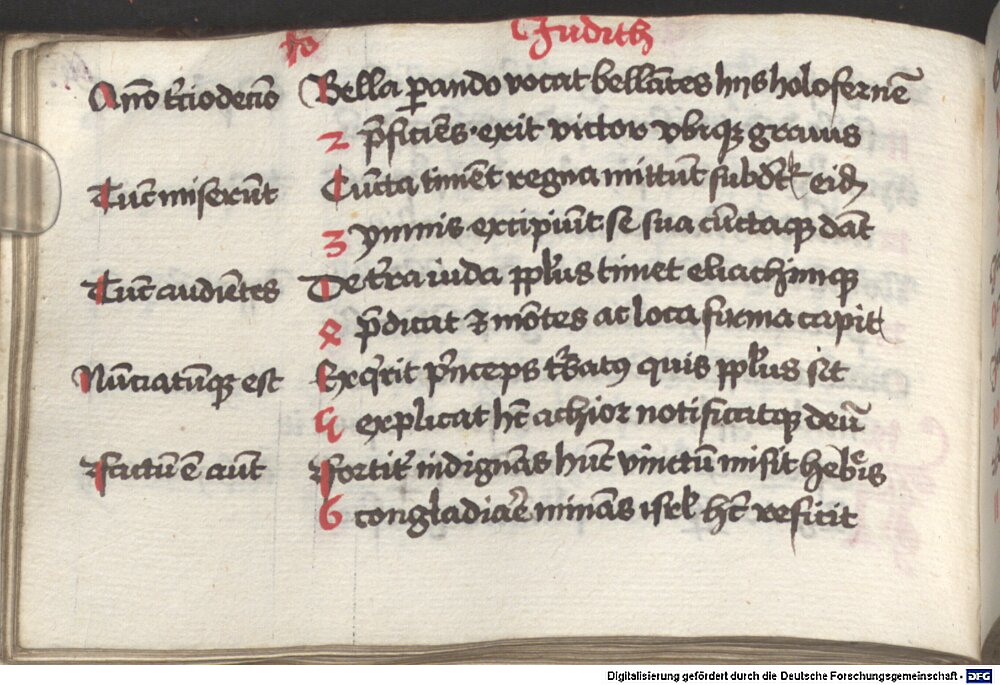 Judith
Anno t'ciodecio Bella parando vocat bellãtes hijs holofernẽ
2 p̃ficiẽs. exit victor vbiqꝫ grauis
Tũc miserũt Cũcta timẽt regna mittũt subdẽt eidẽ
3 ymnis excipiũt se sua cũctaqꝫ dãt
Tũc audiẽtes De t'ra iuda ppl'us timet eliachimqꝫ
4 p̃dicat & mõtes ac loca firma capit
Nũciatũqꝫ est Exq'rit p'nceps t'batꝰ quis ppl'us s'it
5 explicat hĩc achior notificatqꝫ deũ
Factũ ẽ aũt Fortit' indignãs hũc vinctũ misit hebreis
6 congladiar̃e minãs isrl' hĩc reficit
Digitalisierung gefördert durch die Deutsche Forschungsgemeinschaft - DFG